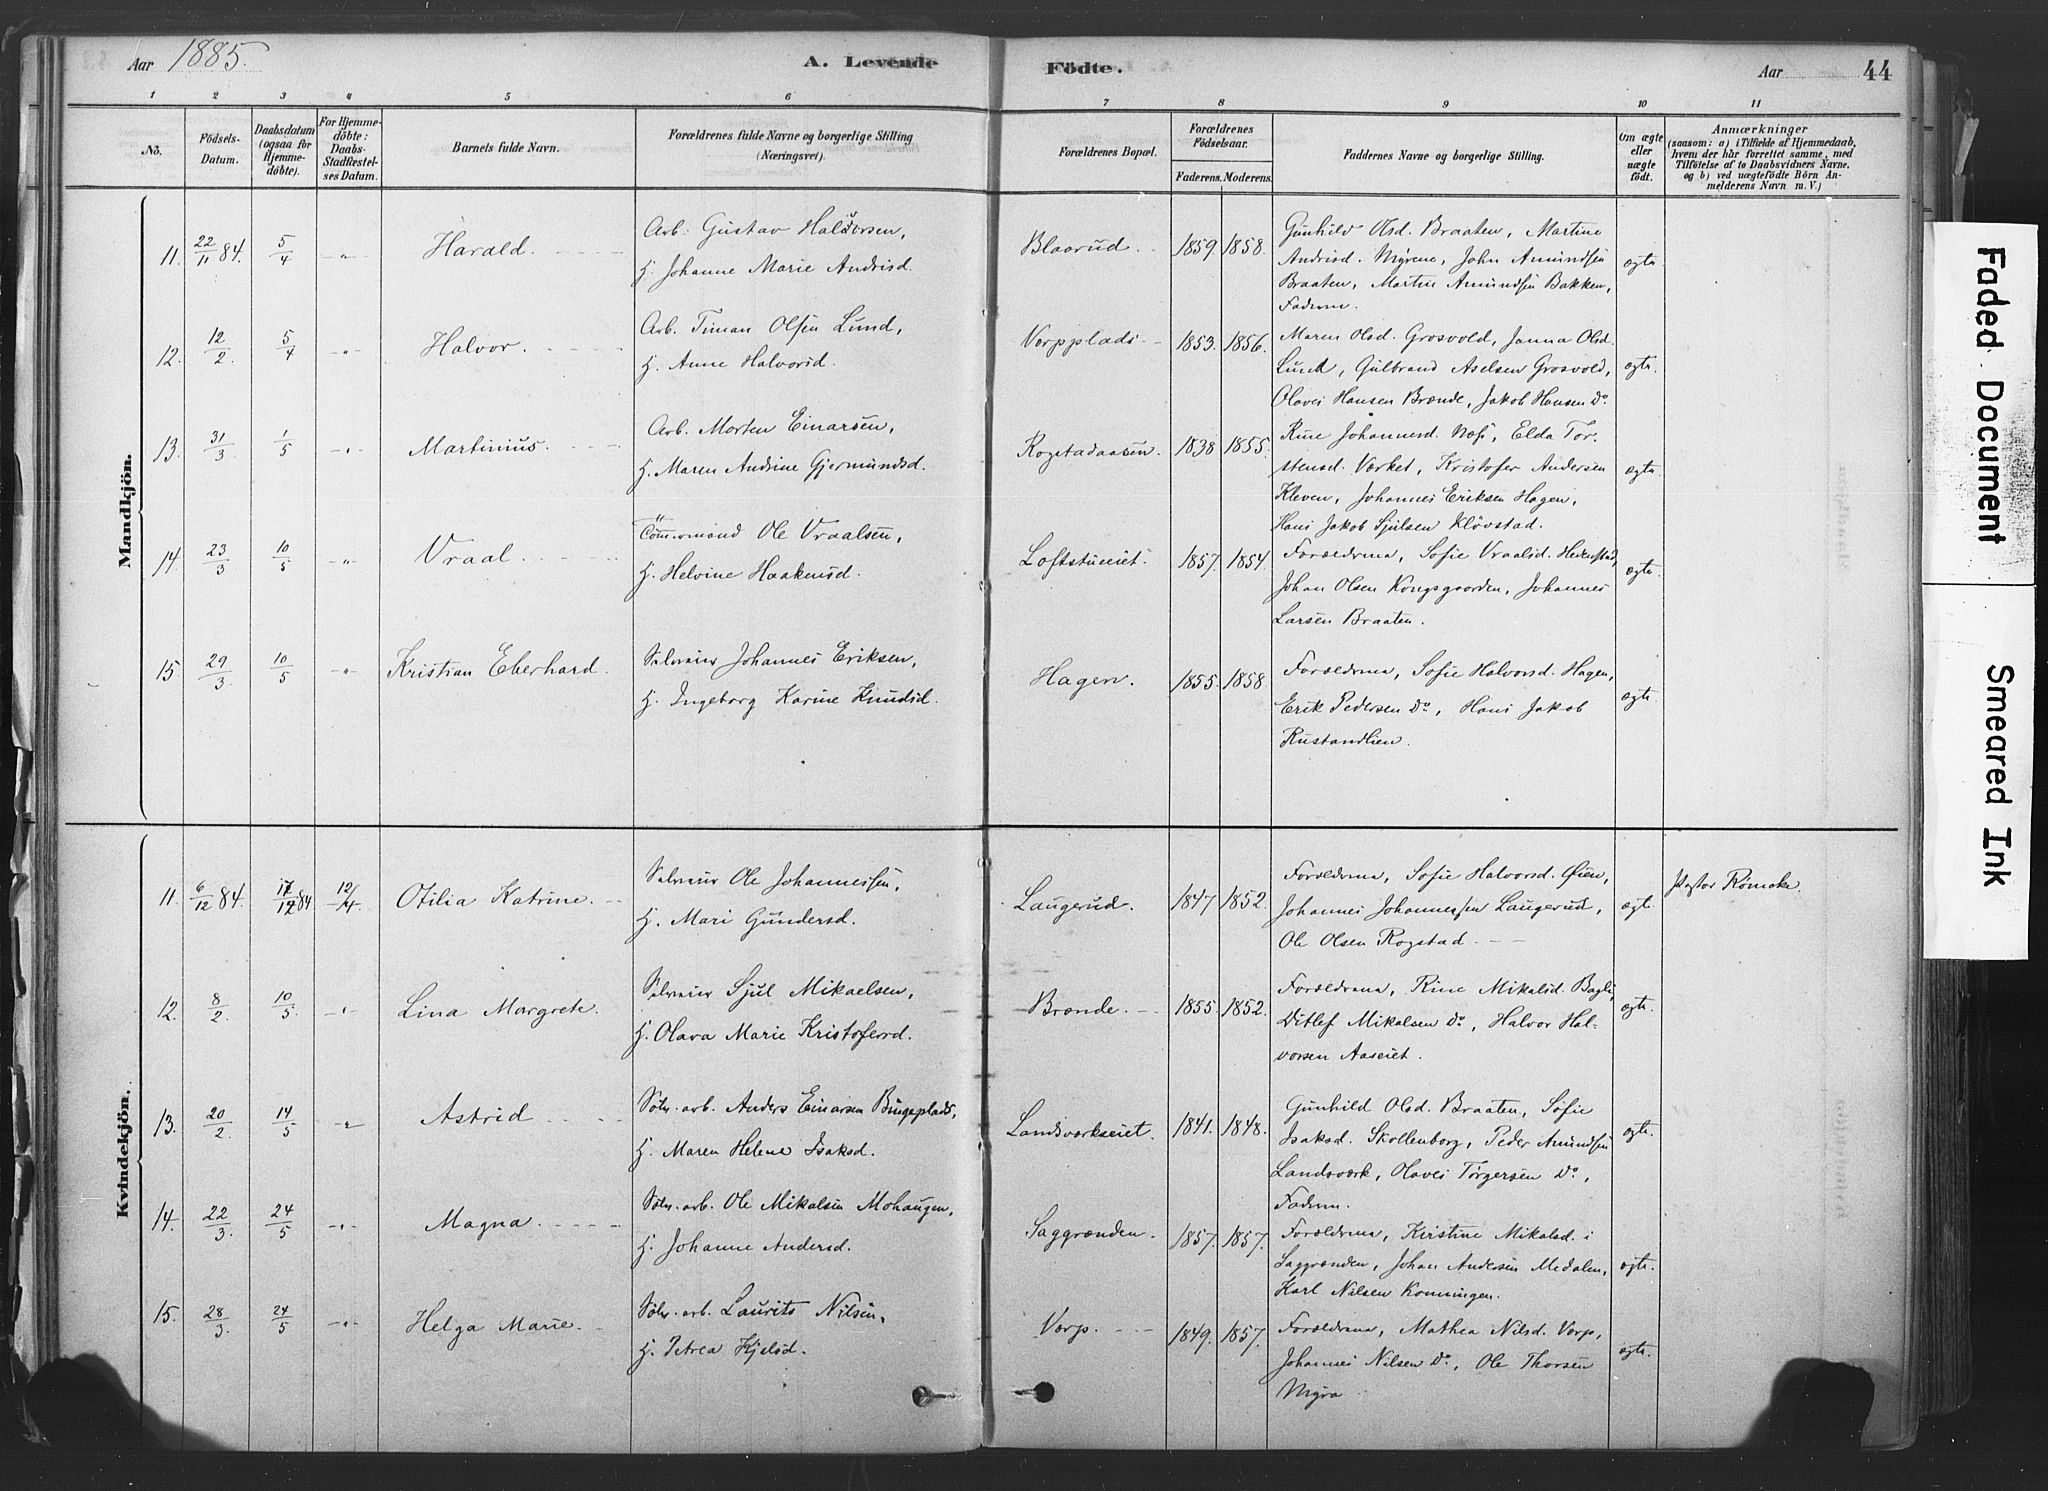 Aar 1885.
A. Levende Födte.
Aar
44
1 2 3 4 5 6 7 8 9 10 11
No.
Födsels-Datum.
Daabsdatum (ogsaa for Hjemmedöbte).
For Hjemmedöbte: Daabs-Stadfestelses Datum.
Barnets fulde Navn.
Forældrenes fulde Navne og borgerlige Stilling (Næringsvei).
Forældrenes Bopæl.
Forældrenes Födselsaar.
Faderens. Moderens.
Faddernes Navne og borgerlige Stilling.
Om ægte eller uægte födt.
Anmærkninger
(saasom: a) i Tilfælde af Hjemmedaab, hvem der har forrettet samme, med Tilföielse af to Daabsvidners Navne, og b) ved uægtefödte Börn Anmelderens Navn m. V.)
Mandkjön.
11. 22/11 84. 5/4 -"- Harald.
Arb. Gustav Halvorsen,
H. Johanne Marie Andrisd.
Blaarud. 1859. 1858.
Gunhild Olsd. Braaten, Martine
Andrisd. Myrene, John Amundsen
Braaten, Martin Amundsen Bakken,
Faderen.
ægte.
12. 12/2 5/4 -"- Halvor.
Arb. Timan Olsen Lund,
H. Anne Halvorsd.
Vorpplads 1853. 1856.
Maren Olsd. Grosvold, Janna Olsd.
Lund, Gulbrand Aslesen Grosvold,
Olaves Hansen Brænde, Jakob Hansen Do.
ægte.
13. 31/3 1/5 -"- Martinius.
Arb. Morten Einarsen,
H. Maren Andrine Gjermundsd.
Rogstadaasen. 1838 1855.
Rine Johannesd. Næss, Elda Tor-
stensd. Værket, Kristofer Andersen
Kleven, Johannes Eriksen Hagen,
Hans Jakob Sjulsen Klövstad.
ægte.
14. 23/3 10/5 -"- Vraal
Ole Vraalsen,
H. Helvine Haakensd.
Loftstueiet. 1857. 1854.
Forældrene, Sofie Vraalsd. Hedenstad,
Johan Olsen Kongsgaarden, Johannes
Larsen Braaten.
ægte.
15. 29/3 10/5 -"- Kristian Eberhard.
Selveier Johannes Eriksen,
H. Ingeborg Karine Knudsd.
Hagen. 1855. 1858
Forældrene, Sofie Halvorsd. Hagen,
Erik Pedersen Do, Hans Jakob
Rustandlien.
ægte.
Kvindekjön.
11. 6/12 84. 17/12 84 12/4. Otilia Katrine.
Selveier Ole Johannessen,
H. Mari Gundersd.
Laugerud. 1847 1852.
Forældrene, Sofie Halvorsd. Øien,
Johannes Johannessen Laugerud,
Ole Olsen Rogstad.
ægte.
Pastor Römcke.
12. 8/2 10/5. -"- Lina Margrete.
Selveier Sjul Mikaelsen,
H. Olava Marie Kristofersd.
Brænde. 1855. 1852.
Forældrene, Rine Mikalsd. Bagli,
Ditlef Mikalsen Do, Halvor Hal-
vorsen Aaseiet.
ægte.
13. 20/2 14/5 -"- Astrid
Sölv. arb. Anders Einarsen Bingeplads,
H. Maren Helene Isaksd.
Landsværkseiet. 1841. 1848.
Gunhild Olsd. Braaten, Sofie
Isaksd. Skollenborg, Peder Amundsen
Landsværk, Olaves Torgersen Do,
Faderen.
ægte.
14. 22/3. 24/5 -"- Magna.
Sölv. arb. Ole Mikalsen Mohaugen,
H. Johanne Andersd.
Saggrænden. 1857. 1857.
Forældrene, Kirstine Mikalsd. i
Saggrænden, Johan Andersen Medalen,
Karl Nilsen Konningen.
ægte.
15. 28/3. 24/5 -"- Helga Marie.
Sölv. arb. Laurits Nilsen,
H. Petrea Kjelsd.
Vorp. 1849. 1857.
Forældrene, Mathea Nilsd. Vorp,
Johannes Nilsen Do, Ole Thorsen
Myra
ægte.
Faded Document
Smeared Ink